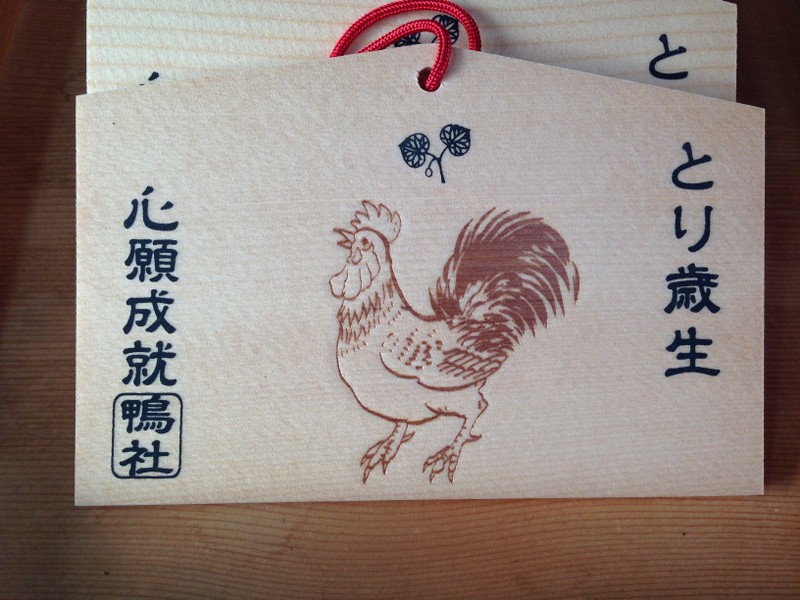 とり歳生
心願成就
鴨社
と